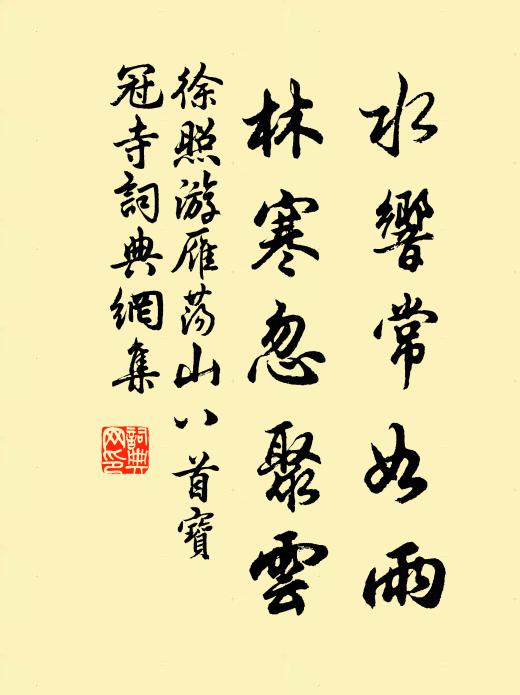 水響常如雨
林寒忽聚雲
徐照游雁荡山八首寶
冠寺詞典網集
詞典
网印